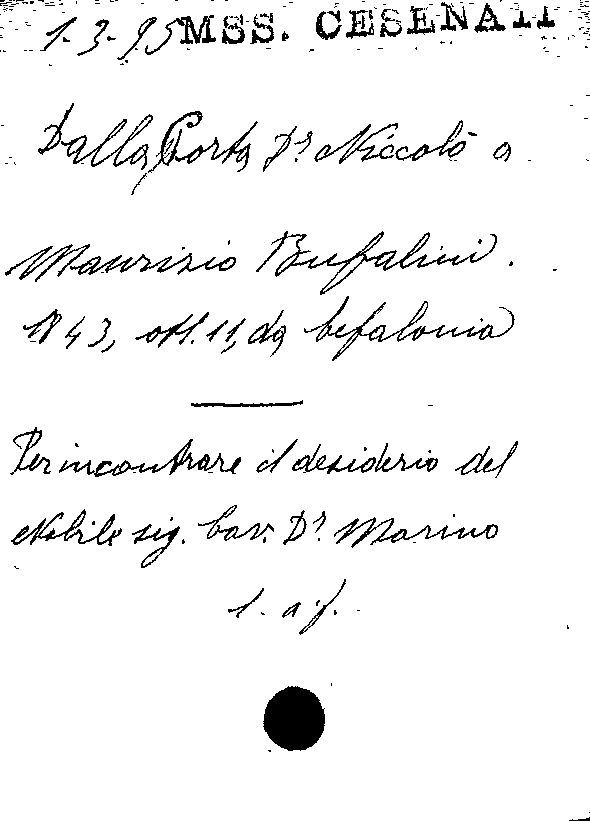 1-3-95 MSS. CESENATI
Dalla Porta Dr. Niccolò a
Maurizio Bufalini.
1843, ott. 11, da Cefalonia
Per incontrare il desiderio del
Nobile sig. Cav. Dr. Marino
l. a f.